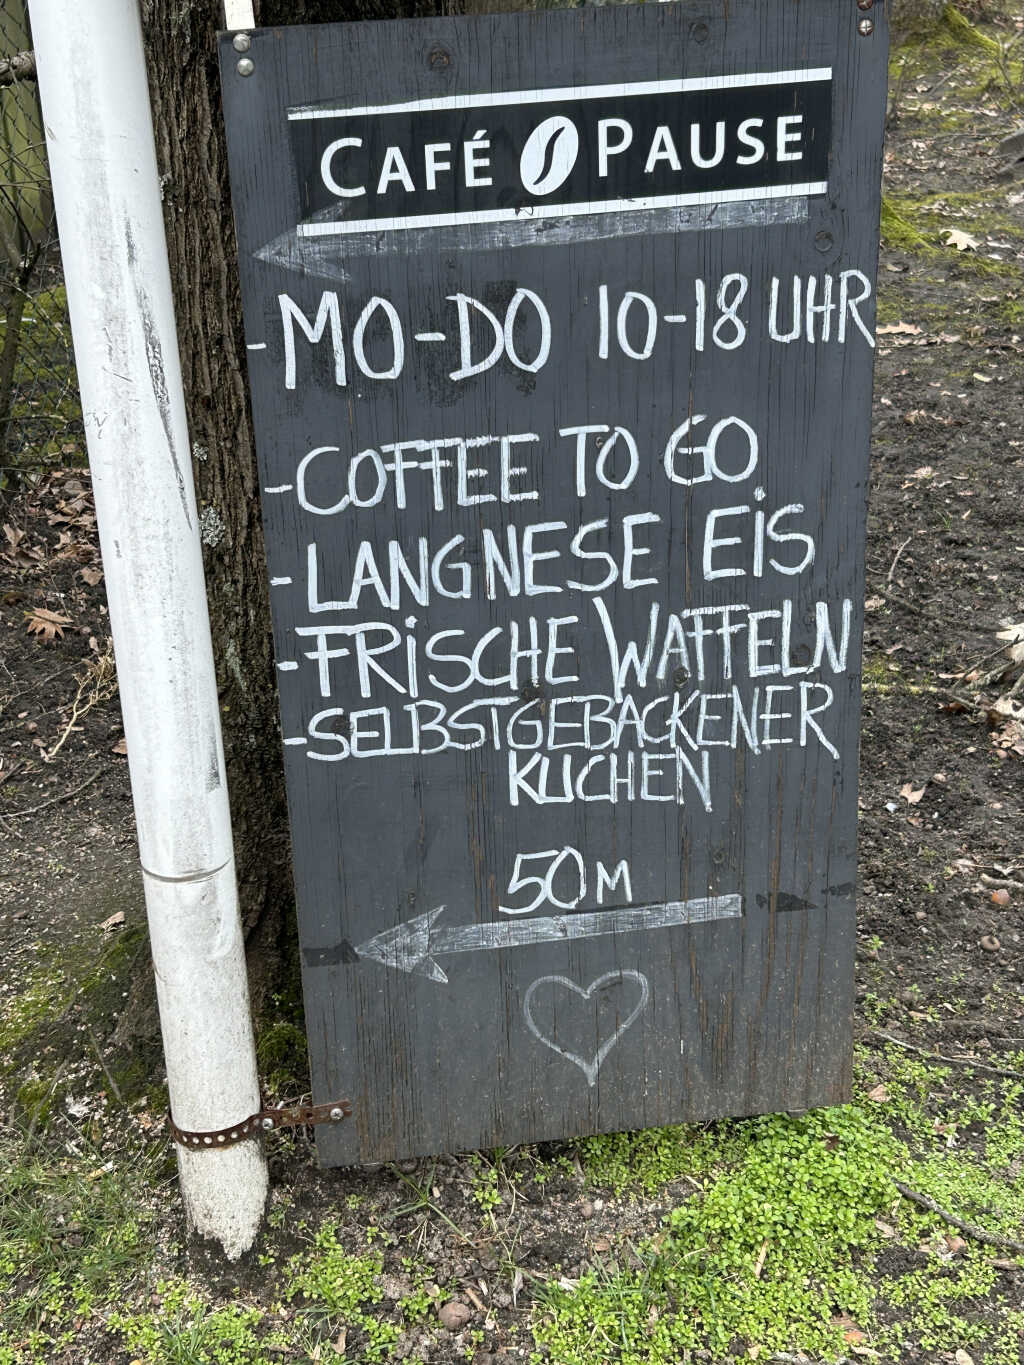 CAFÉ PAUSE
- MO-DO 10-18 UHR
- COFFEE TO GO
- LANGNESE EiS
- FRiSCHE WAFFELN
- SELBSTGEBACKENER
KUCHEN
50 M